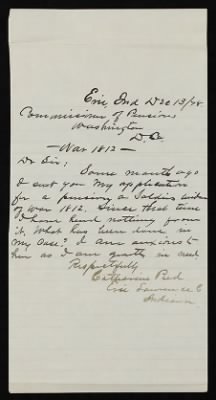 Erie, Ind Dec 13/78
Commissioner of Pensions
Washington
D.C.
—War 1812—
Dr Sir;
Some months ago
I sent you my application
for a pension as Soldiers widow
of War 1812. Since that time
I have heard nothing from
it. What has been done in
my case? I am anxious to
hear as I am greatly in need
Respectfully
Catharine
Erie Lawrence C
Indiana